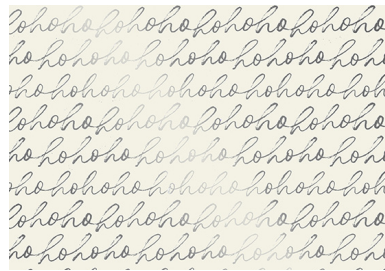 hohoho hohoho hohoho hohoho
hohoho hohoho hohoho hohoho
hohoho hohoho hohoho hohoho
hohoho hohoho hohoho hohoho
hohoho hohoho hohoho hohoho
hohoho hohoho hohoho hohoho
hohoho hohoho hohoho hohoho
hohoho hohoho hohoho hohoho